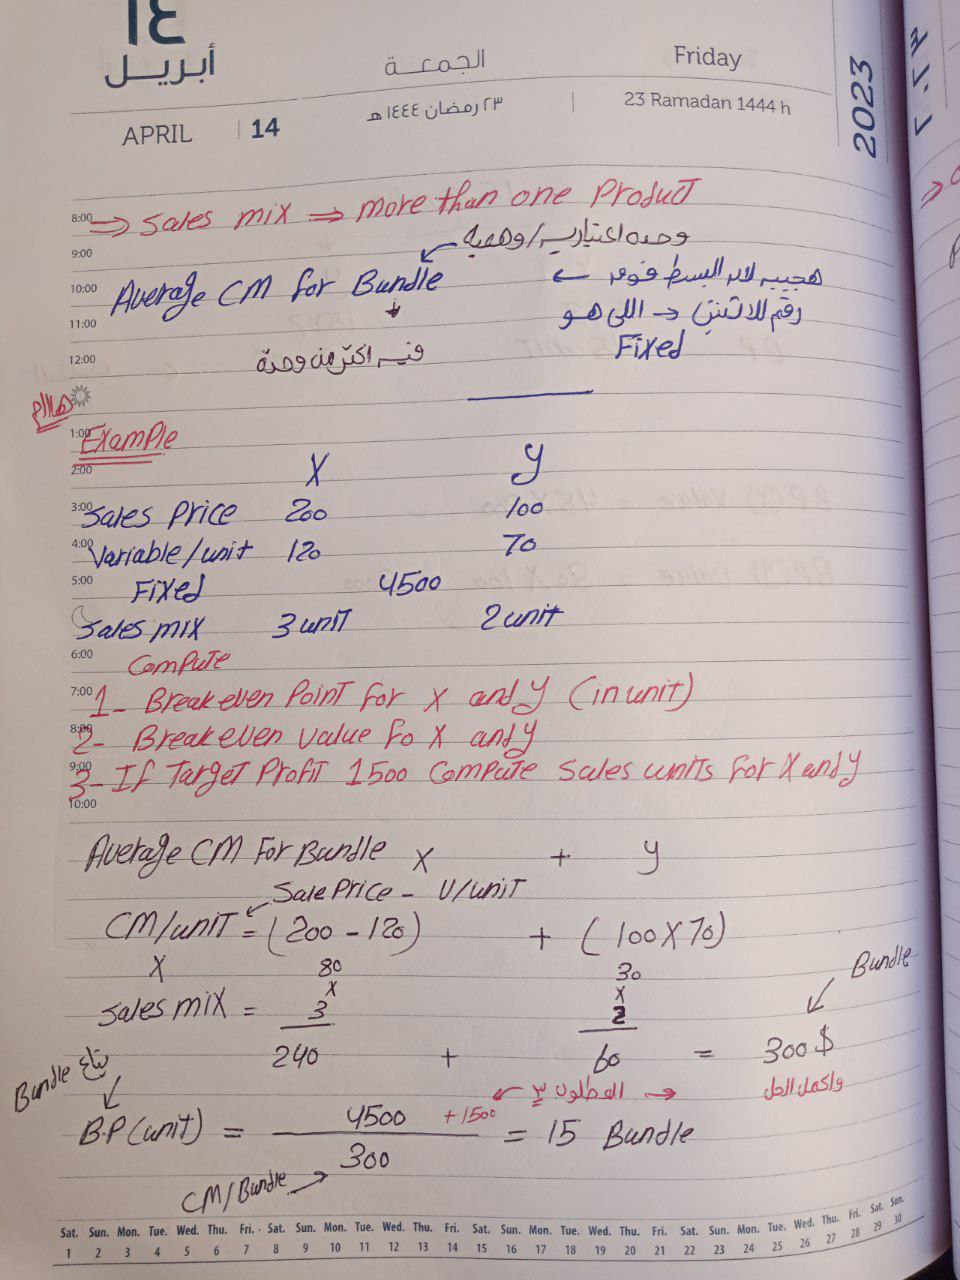 ١٤
أبريل
الجمعـــة
Friday
APRIL | 14
٢٣ رمضان ١٤٤٤ هـ | 23 Ramadan 1444 h
2023
8:00 ⇒ Sales mix ⇒ more than one Product
وحده اعتباريه/وهميه
9:00
10:00 Average CM for Bundle
هجيبه لان البسط فوق ←
رقم للاتنين → اللي هو
Fixed
11:00
12:00 فيه اكتر من وحدة
هااام
1:00 Example
2:00 X y
3:00 Sales Price 200 100
4:00 Variable/unit 120 70
5:00 Fixed 4500
Sales mix 3 unit 2 unit
6:00 Compute
7:00 1- Break even Point for X and y (in unit)
8:00 2- Break even value Fo X and y
9:00 3- If Target Profit 1500 Compute Sales units for X and y
10:00
Average CM For Bundle X + y
Sale Price - V/unit
CM/unit = (200 - 120) + (100 X 70)
X 80 30
Bundle
x x
Sales mix = 3 2
240 + 60 = 300 $
Bundle بتاع
← المطلوب ٣ → واكمل الحل
B.P (unit) = 4500 +1500 = 15 Bundle
300
CM/Bundle
Sat. Sun. Mon. Tue. Wed. Thu. Fri. Sat. Sun. Mon. Tue. Wed. Thu. Fri. Sat. Sun. Mon. Tue. Wed. Thu. Fri. Sat. Sun. Mon. Tue. Wed. Thu. Fri. Sat. Sun.
1 2 3 4 5 6 7 8 9 10 11 12 13 14 15 16 17 18 19 20 21 22 23 24 25 26 27 28 29 30